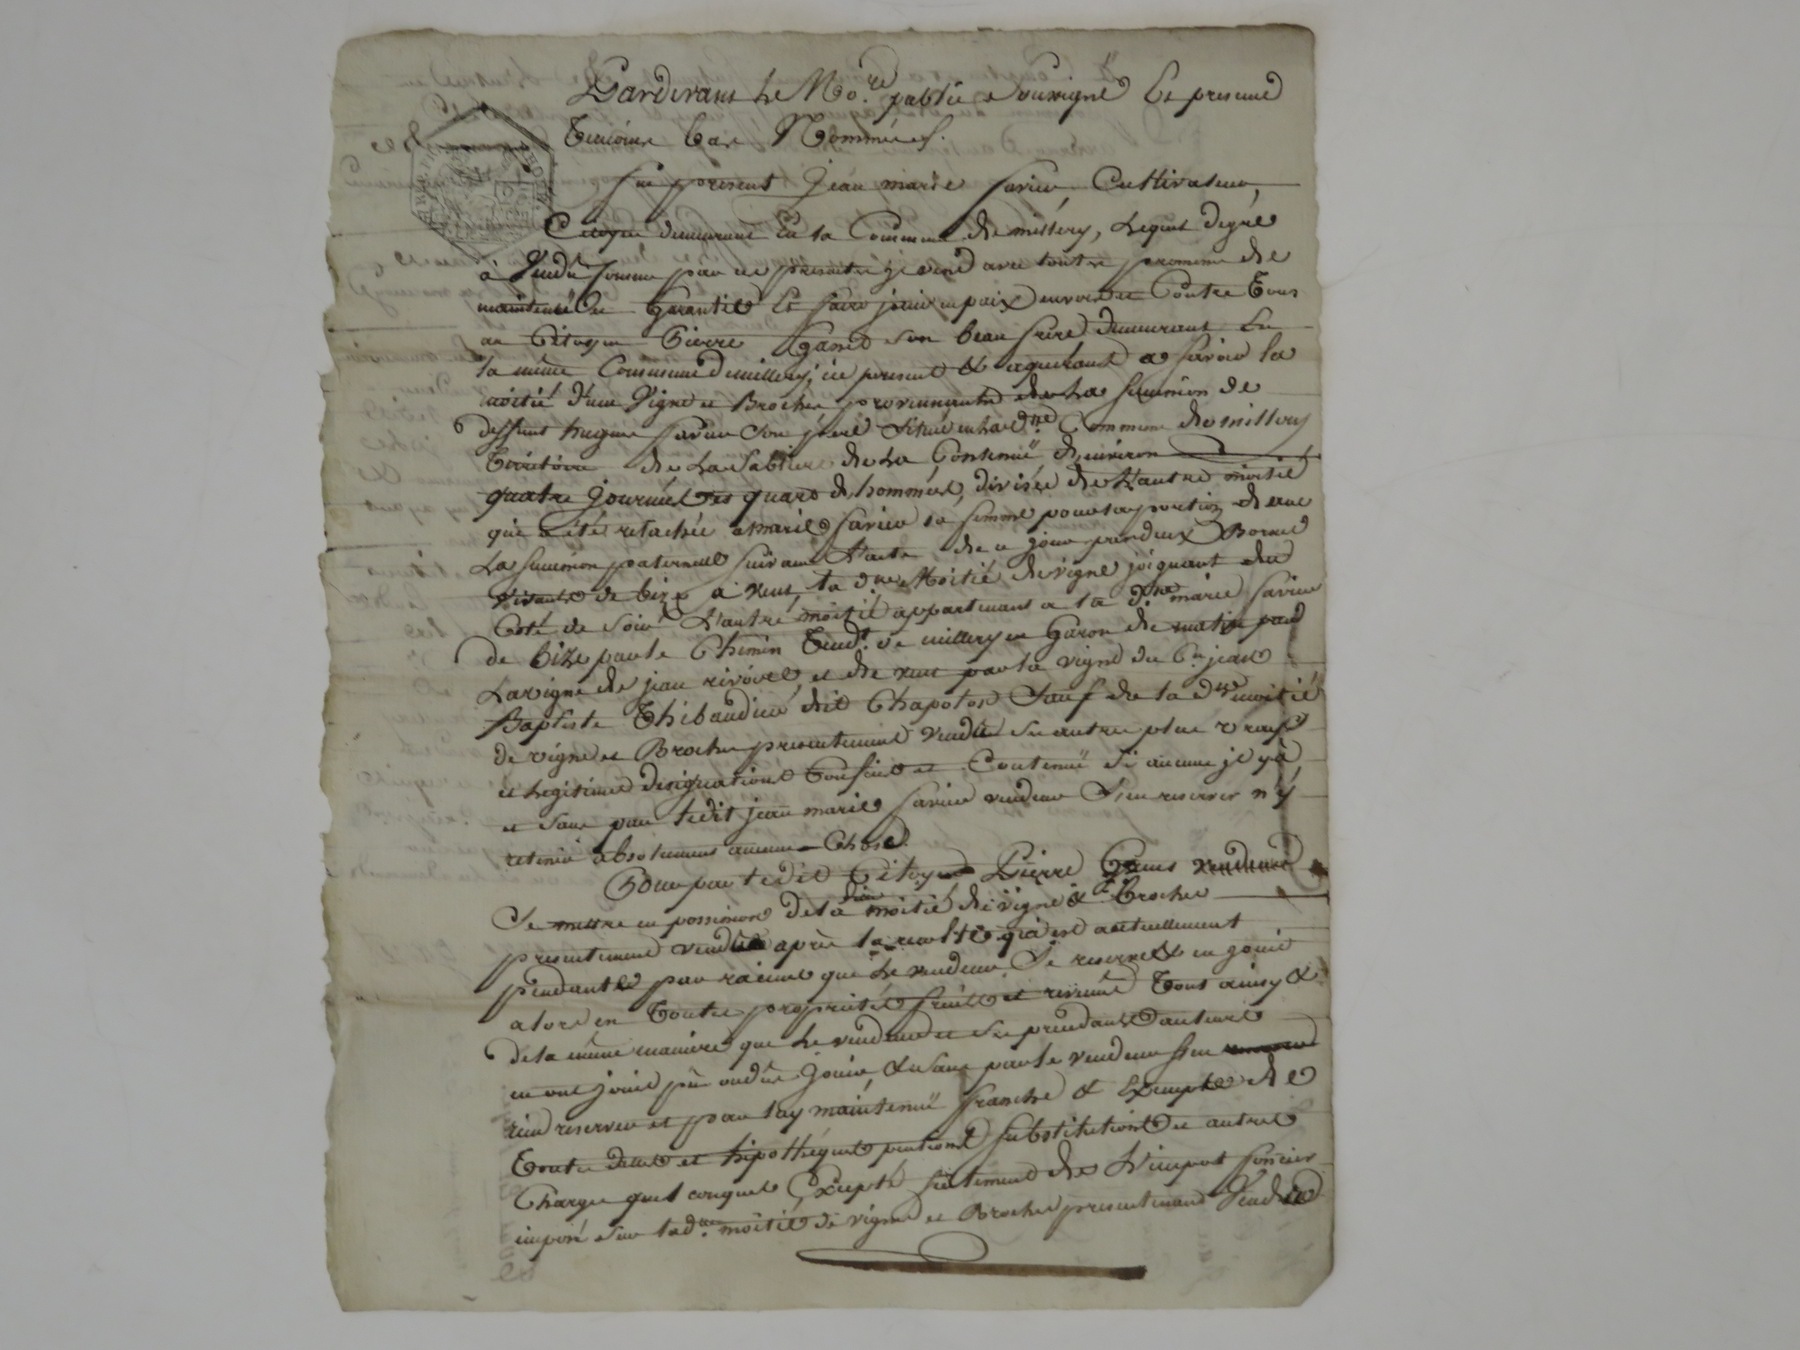 Pardevant le No.re public soussigné Et presents
Temoins bas Nommés.
fut present jean marie favier Cultivateur,
Citoyen demeurant En la Commune de millery, lequel degré
à Vendu comme par ces presentes il vend avec toutte promesse de
maintenüe garantie Et faire jouir en paix envers et Contre Tous
au Citoyen Pierre son beau frere demeurant En
la même Commune de millery, ici present & aquerant a savoir la
moitié d'une Vigne et Broche provenante de La succession de
deffunt hugue favier son pere située en lad.tte Commune de millery
territoire de La Sabliere de La Contenüe d'environ
quatre journée et quart d'hommée, divisée de L'autre moitié
qui a été relachée a marie favier sa femme pour sa portion dans
La succession paternelle suivant L'acte de ce jour par deux Bornes
visants de bize à vent, la d.tte Moitié de vigne joignant du
Coté de soir L'autre moitié appartenant a la d.tte marie favier
de bize par le Chemin Tend.t de millery a Garon de matin par
La vigne de jean rivoire, et de vent par la vigne du C.n jean
Baptiste Thibaudier dit Chapolon Sauf de la d.tte moitié
de vigne et Broche presentement vendue ses autres plus vrays
et legitimes designations Confins et Contenüe si aucune il y à
et sans par ledit jean marie favier vendeur s'en reserver n'y
retenir absolument aucune Chose.
Pour par ledit Citoyen Pierre vendeur
Se mettre en possession de la dite moitié de vigne & Broche
presentement vendue après la recolte qui est actuellement
pendante par racines que le vendeur Se reserve & en jouir
alors en Toutte propriété fruits et revenus Tout ainsy &
de la même maniere que le vendeur et ses precedants auteurs
en ont joui pû ou dû jouir, & sans par le vendeur s'en
rien reserver et par luy maintenüe franche & exempte de
Toutte dettes et hipothéques pentions substitutions et autres
Charges quelconques Excepté seulement de L'impot foncier
imposé sur lad.tte moitié de vigne et Broche presentement Vendue